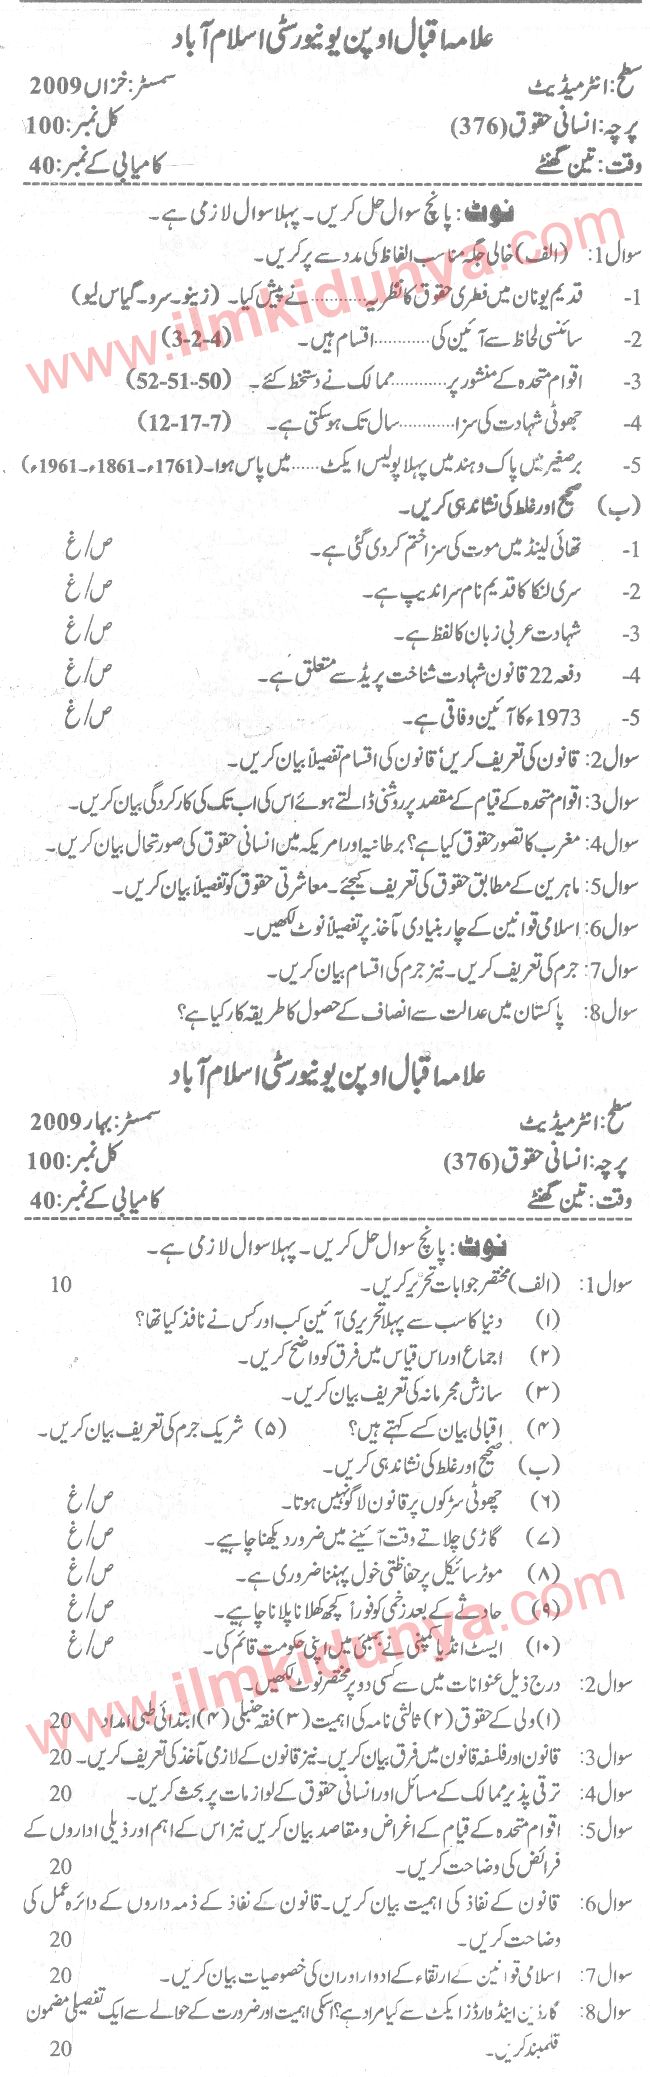 علامہ اقبال اوپن یونیورسٹی اسلام آباد
سطح: انٹرمیڈیٹ سمسٹر: خزاں 2009
پرچہ: انسانی حقوق (376) کل نمبر: 100
وقت: تین گھنٹے کامیابی کے نمبر: 40
نوٹ: پانچ سوال حل کریں۔ پہلا سوال لازمی ہے۔
سوال 1: (الف) خالی جگہ مناسب الفاظ کی مدد سے پر کریں۔
1- قدیم یونان میں فطری حقوق کا نظریہ .......... نے پیش کیا۔ (زینو۔ سرو۔ گیاس لیو)
2- سائنسی لحاظ سے آئین کی .......... اقسام ہیں۔ (4-2-3)
3- اقوام متحدہ کے منشور پر .......... ممالک نے دستخط کئے۔ (50-51-52)
4- جھوٹی شہادت کی سزا .......... سال تک ہو سکتی ہے۔ (7-17-12)
5- برصغیر میں پاک و ہند میں پہلا پولیس ایکٹ ...... میں پاس ہوا۔ (1761ء۔ 1861ء۔ 1961ء)
(ب) صحیح اور غلط کی نشاندہی کریں۔
1- تھائی لینڈ میں موت کی سزا ختم کر دی گئی ہے۔ ص/غ
2- سری لنکا کا قدیم نام سراندیپ ہے۔ ص/غ
3- شہادت عربی زبان کا لفظ ہے۔ ص/غ
4- دفعہ 22 قانون شہادت شناخت پریڈ سے متعلق ہے۔ ص/غ
5- 1973ء کا آئین وفاقی ہے۔ ص/غ
سوال 2: قانون کی تعریف کریں، قانون کی اقسام تفصیلاً بیان کریں۔
سوال 3: اقوام متحدہ کے قیام کے مقصد پر روشنی ڈالتے ہوئے اس کی اب تک کی کارکردگی بیان کریں۔
سوال 4: مغرب کا تصور حقوق کیا ہے؟ برطانیہ اور امریکہ میں انسانی حقوق کی صورتحال بیان کریں۔
سوال 5: ماہرین کے مطابق حقوق کی تعریف کیجئے۔ معاشرتی حقوق کو تفصیلاً بیان کریں۔
سوال 6: اسلامی قوانین کے چار بنیادی مآخذ پر تفصیلاً نوٹ لکھیں۔
سوال 7: جرم کی تعریف کریں۔ نیز جرم کی اقسام بیان کریں۔
سوال 8: پاکستان میں عدالت سے انصاف کے حصول کا طریقہ کار کیا ہے؟
علامہ اقبال اوپن یونیورسٹی اسلام آباد
سطح: انٹرمیڈیٹ سمسٹر: بہار 2009
پرچہ: انسانی حقوق (376) کل نمبر: 100
وقت: تین گھنٹے کامیابی کے نمبر: 40
نوٹ: پانچ سوال حل کریں۔ پہلا سوال لازمی ہے۔
سوال 1: (الف) مختصر جوابات تحریر کریں۔ 10
(۱) دنیا کا سب سے پہلا تحریری آئین کب اور کس نے نافذ کیا تھا؟
(۲) اجماع اور اس قیاس میں فرق کو واضح کریں۔
(۳) سازش مجرمانہ کی تعریف بیان کریں۔
(۴) اقبالی بیان کسے کہتے ہیں؟ (۵) شریک جرم کی تعریف بیان کریں۔
(ب) صحیح اور غلط کی نشاندہی کریں۔
(۶) چھوٹی سڑکوں پر قانون لاگو نہیں ہوتا۔ ص/غ
(۷) گاڑی چلاتے وقت آئینے میں ضرور دیکھنا چاہیے۔ ص/غ
(۸) موٹر سائیکل پر حفاظتی خول پہننا ضروری ہے۔ ص/غ
(۹) حادثے کے بعد زخمی کو فوراً کچھ کھلانا پلانا چاہیے۔ ص/غ
(۱۰) ایسٹ انڈیا کمپنی نے بمبئی میں اپنی حکومت قائم کی۔ ص/غ
سوال 2: درج ذیل عنوانات میں سے کسی دو پر مختصر نوٹ لکھیں۔
(۱) ولی کے حقوق (۲) ثالثی نامہ کی اہمیت (۳) فقہ حنبلی (۴) ابتدائی طبی امداد 20
سوال 3: قانون اور فلسفہ قانون میں فرق بیان کریں۔ نیز قانون کے لازمی مآخذ کی تعریف کریں۔ 20
سوال 4: ترقی پذیر ممالک کے مسائل اور انسانی حقوق کے لوازمات پر بحث کریں۔ 20
سوال 5: اقوام متحدہ کے قیام کے اغراض و مقاصد بیان کریں نیز اس کے اہم اور ذیلی اداروں کے
فرائض کی وضاحت کریں۔ 20
سوال 6: قانون کے نفاذ کی اہمیت بیان کریں۔ قانون کے نفاذ کے ذمہ داروں کے دائرہ عمل کی
وضاحت کریں۔ 20
سوال 7: اسلامی قوانین کے ارتقاء کے ادوار اور ان کی خصوصیات بیان کریں۔ 20
سوال 8: گارڈین اینڈ وارڈز ایکٹ سے کیا مراد ہے؟ اسکی اہمیت اور ضرورت کے حوالے سے ایک تفصیلی مضمون
قلمبند کریں۔ 20
www.ilmkidunya.com
www.ilmkidunya.com